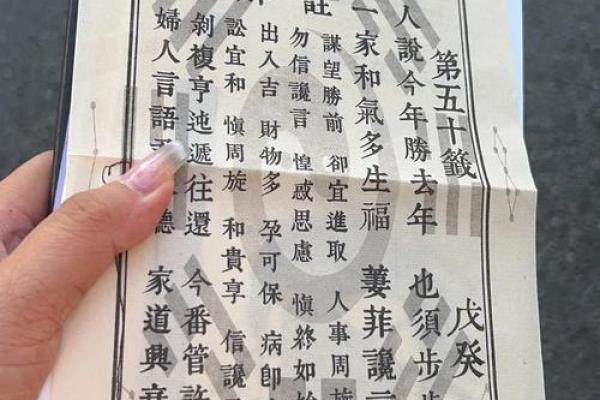 第五十籤 戊癸
人說今年勝去年 也須步步
一家和氣多生福 萋菲讒
註
謀望勝前 卻宜進取 人事周旋
勿信讒言 惶惑思慮 慎終如始
出入吉 財物多 孕可保 病即
訟宜和 慎周旋 和貴享 信讒
剝複亨迍遞往還 今番管許
婦人言語 聽 家道興衰